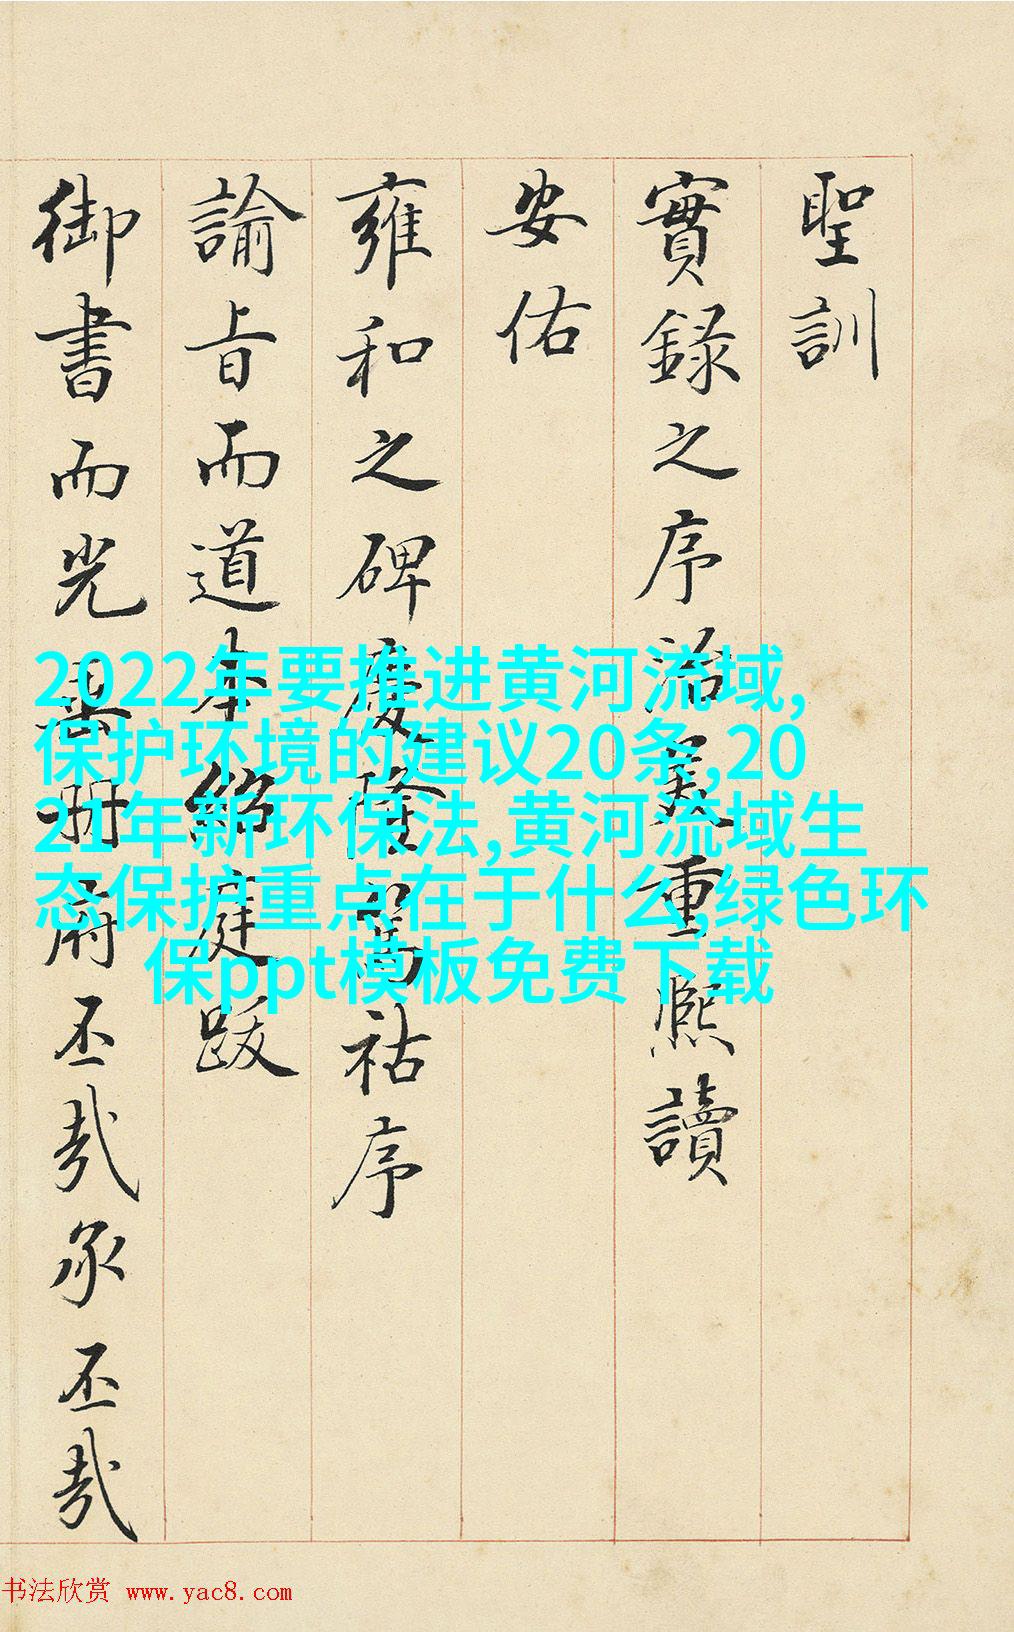 聖訓
實録之序治美重熙讀
安佑
雍和之碑慶隆篤祜序
諭旨而道本紹庭跋
御書而光册府丕哉承丕哉
2022年要推进黄河流域,
保护环境的建议20条,20
21年新环保法,黄河流域生
态保护重点在于什么,绿色环
保ppt模板免费下载
书法欣赏 www.yac8.com